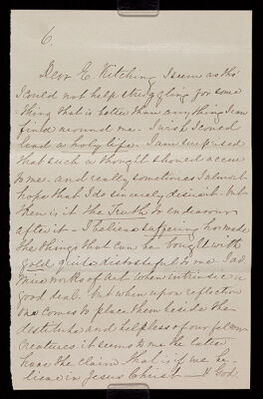 6.
Dear E. Kitching I seem as tho'
I could not help struggling for some
thing that is better than any thing I can
find around me. I wish I could
lead a holy life. I am surprised
that such a thought should occur
to me. and really sometimes I almost
hope that I do sincerely desire it. but
then is it the Truth to endeavour
after it – I believe suffering has made
the things that can be bought with
gold quite distasteful to me. I ad
mire works of Art when intrinsic a
good deal. but when upon reflection
one comes to place them beside the
destitute and helpless of our fellow
creatures it seems to me the latter
have the claim that is if we be-
lieve in Jesus Christ – God